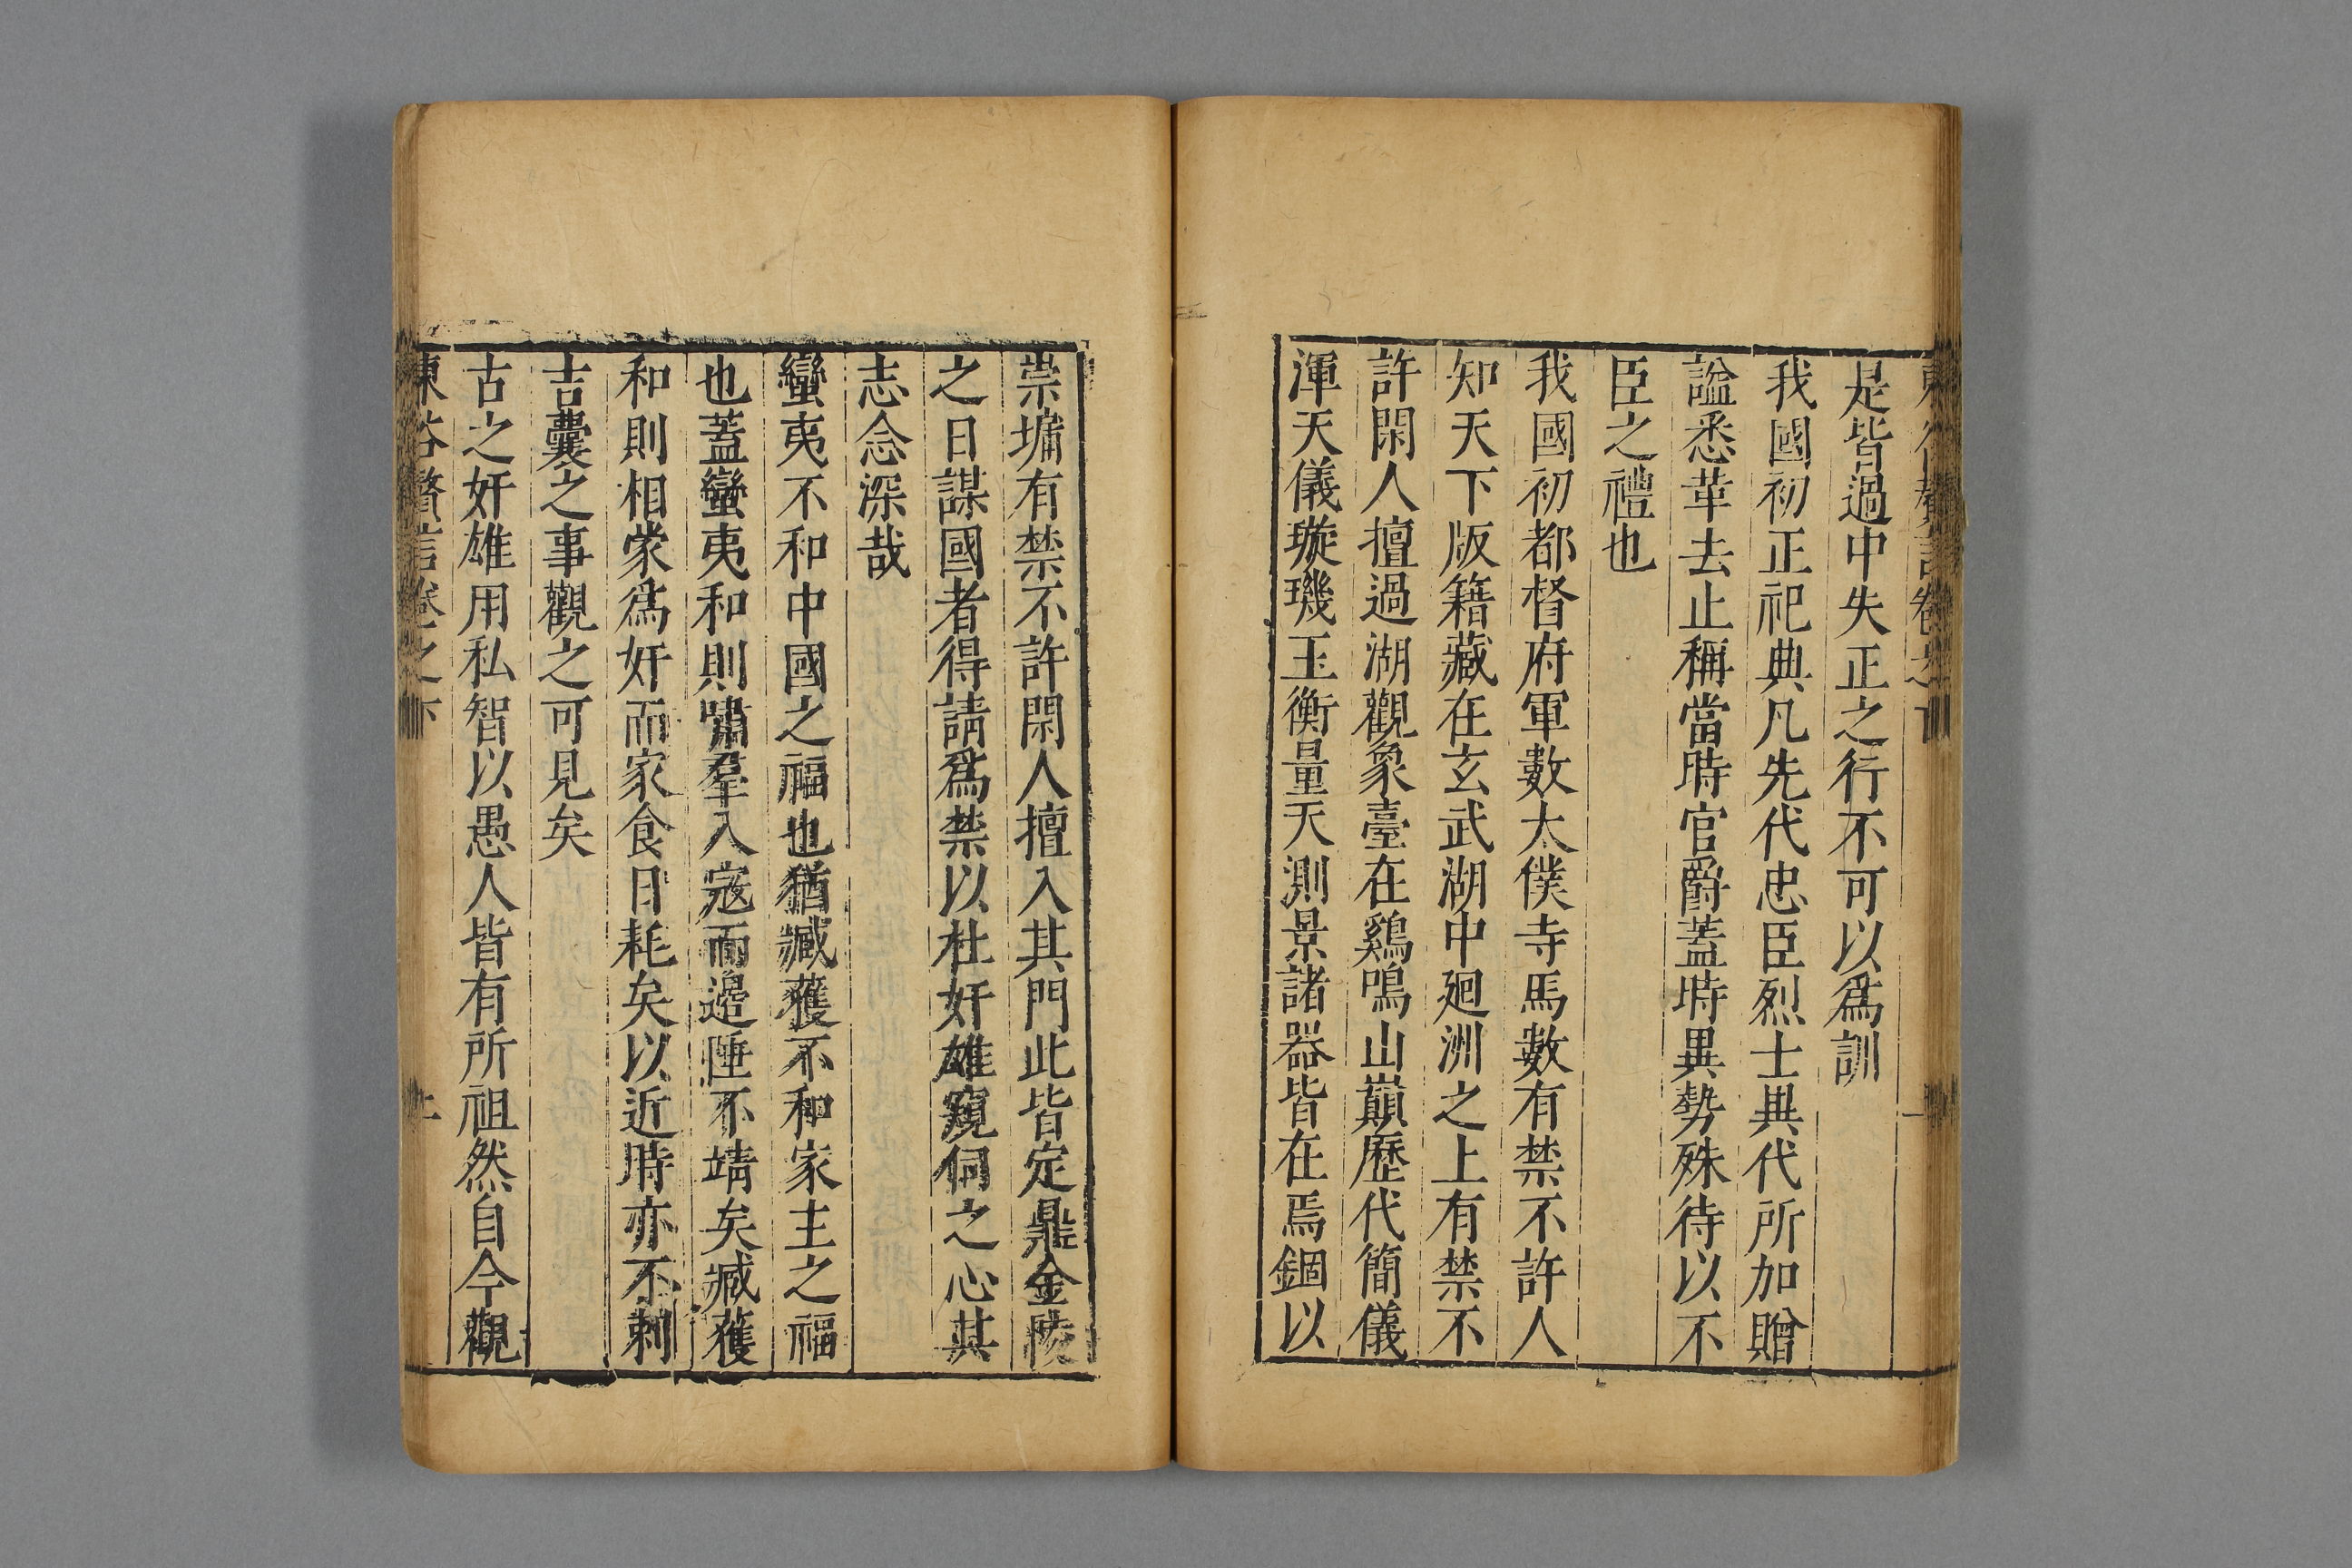 是皆過中失正之行不可以爲訓
我國初正祀典凡先代忠臣烈士異代所加贈
諡悉革去止稱當時官爵蓋時異勢殊待以不
臣之禮也
我國初都督府軍數太僕寺馬數有禁不許人
知天下版籍藏在玄武湖中廻洲之上有禁不
許閑人擅過湖觀象臺在鷄鳴山巔歷代簡儀
渾天儀璇璣玉衡量天測景諸器皆在焉錮以
崇墉有禁不許閑人擅入其門此皆定鼎金陵
之日謀國者得請爲禁以杜奸雄窺伺之心其
志念深哉
蠻夷不和中國之福也猶臧獲不和家主之福
也蓋蠻夷和則嘯羣入寇而邉陲不靖矣臧獲
和則相蒙爲奸而家食日耗矣以近時亦不剌
吉囊之事觀之可見矣
古之奸雄用私智以愚人皆有所祖然自今觀
東谷贅言卷之下